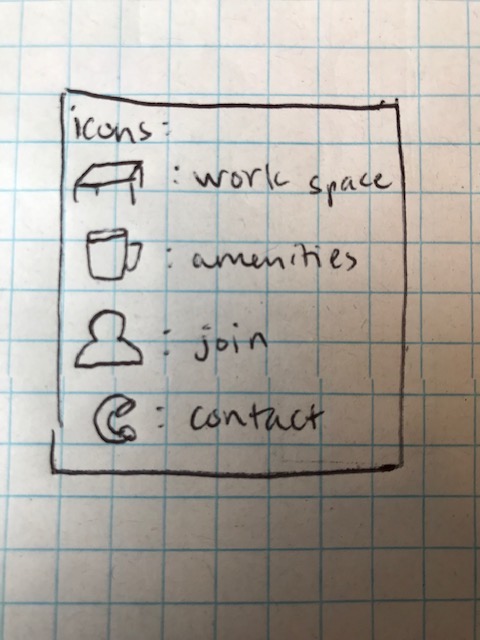 icons:
: work space
: amenities
: join
: contact